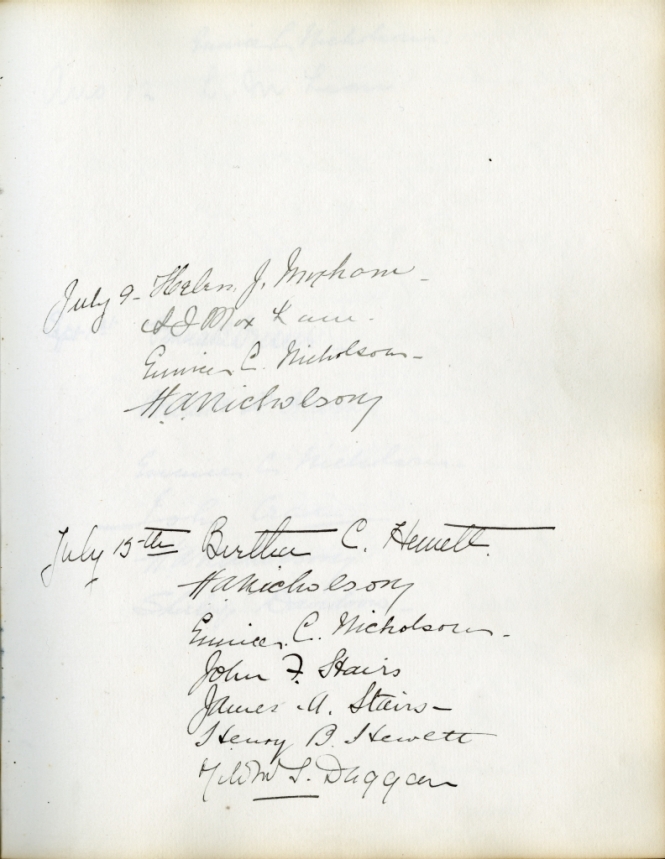 July 9 - Helen J. Moxham -
Moxham -
Eunice C. Nicholson -
H.A. Nicholson
July 15th Bertha C. Hewett.
H.A. Nicholson
Eunice C. Nicholson -
John F. Stairs
James A. Stairs -
Henry B. Hewett
S. Duggan